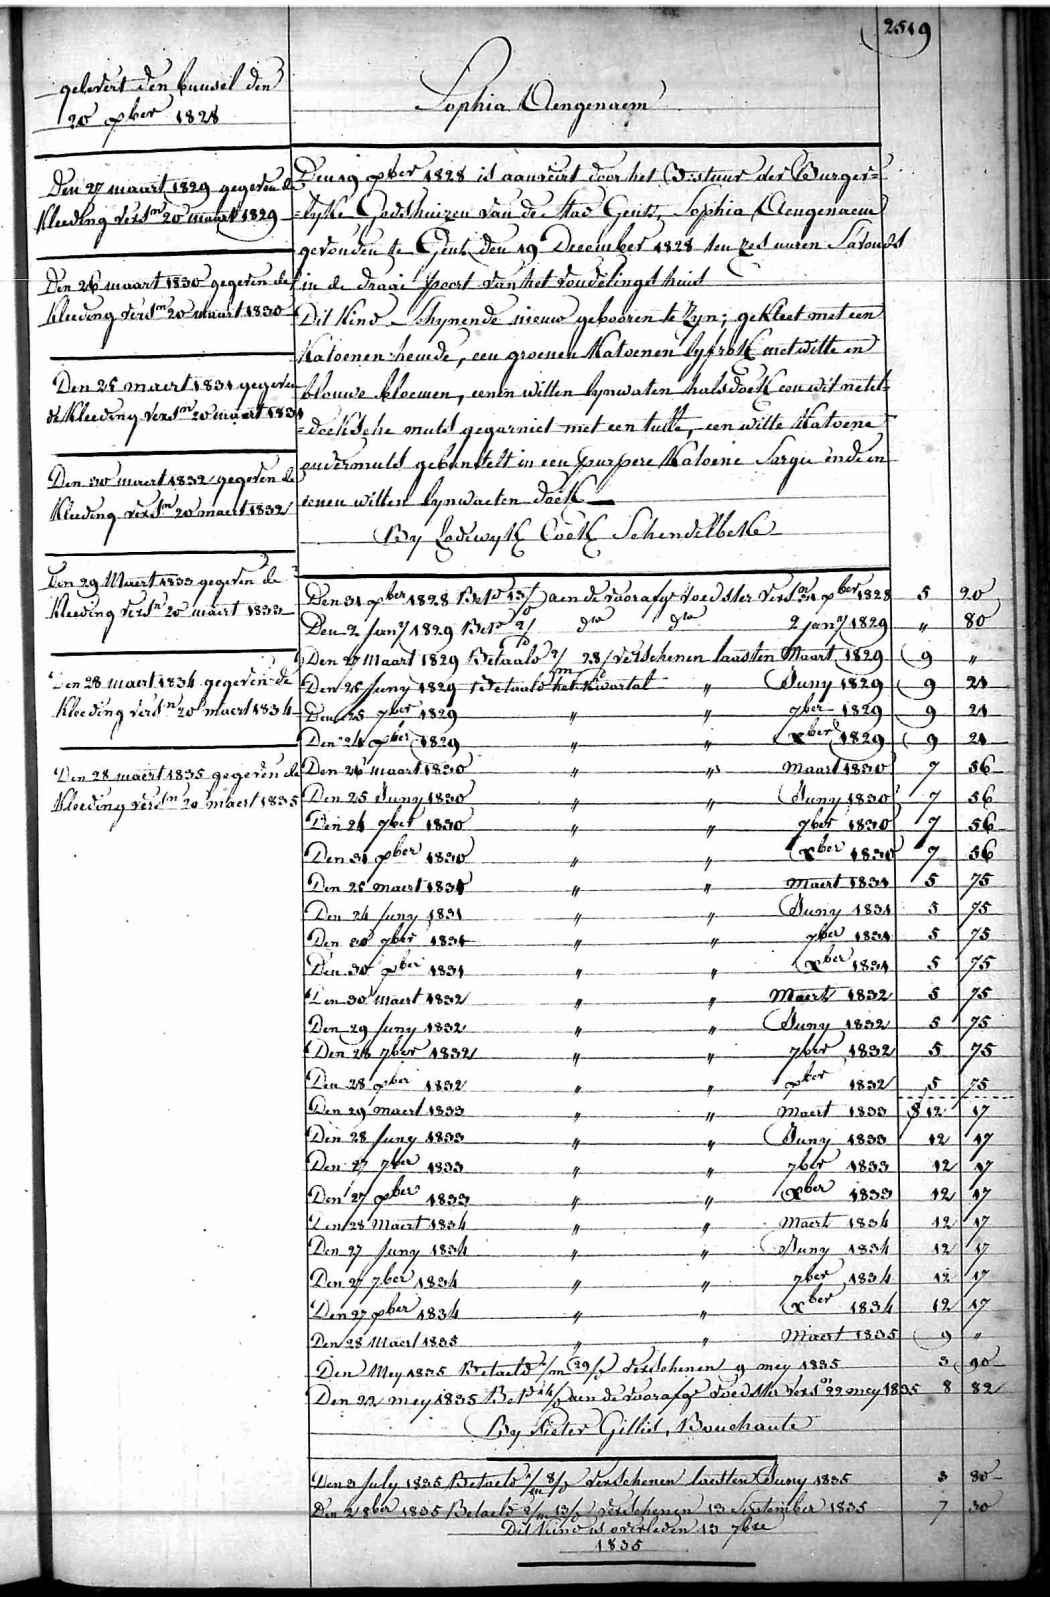 2519
gelevert den buusel den
20 xber 1828
Sophia Aengenaem
Den 27 maart 1829 gegeven de
Kleeding versn 20 maart 1829
Den 26 maart 1830 gegeven de
kleeding versn 20 maart 1830
Den 25 maert 1831 gegeven
de Kleeding versn 20 maart 1831
Den 30 maert 1832 gegeven de
Kleeding versn 20 maert 1832
Den 29 Maert 1833 gegeven de
kleeding versn 20 maert 1833
Den 28 maert 1834 gegeven de
kleeding versn 20 maert 1834
Den 28 maert 1835 gegeven de
kleeding versn 20 maert 1835
Den 19 xber 1828 is aanveert door het Bestuur der Burger=
=lyke Godshuizen van de Stad Gent, Sophia Aengenaem
gevonden te Gent den 19 December 1828 ten zes uuren Savonds
in de draai poort van het vondelingshuis
Dit Kind schynende nieuw gebooren te Zyn; gekleet met een
Katoenen hemde, een groenen Katoenen lyfrok met witte en
blouwe bloemen, eenen witten lynwaten halsdoek een wit netel=
=doeksche muts gegarniet met een tulle, een witte Katoene
ondermuts gebusselt in een purpere Katoene Sargie ende in
eenen witten lynwaeten doek
By Lodewyk Cock Schendelbeke
Den 31 xber 1828 Betd 13/ aen de voorafge voedster versn 31 xber 1828 5 20
Den 2 Jany 1829 Betd 2/ dto dto 2 jany 1829 " 80
Den 27 Maart 1829 Betaald 2/m 28/ verschenen laasten Maart 1829 9 "
Den 25 Juny 1829 Betaald het Kwartal " Juny 1829 9 21
Den 25 7ber 1829 " " 7ber 1829 9 21
Den 24 xber 1829 " " xber 1829 9 21
Den 26 maart 1830 " " Maart 1830 7 56
Den 25 Juny 1830 " " Juny 1830 7 56
Den 24 7ber 1830 " " 7ber 1830 7 56
Den 31 xber 1830 " " xber 1830 7 56
Den 25 maert 1831 " " Maert 1831 5 75
Den 24 Juny 1831 " " Juny 1831 5 75
Den 30 7ber 1831 " " 7ber 1831 5 75
Den 30 xber 1831 " " xber 1831 5 75
Den 30 Maert 1832 " " Maert 1832 5 75
Den 29 Juny 1832 " " Juny 1832 5 75
Den 28 7ber 1832 " " 7ber 1832 5 75
Den 28 xber 1832 " " xber 1832 5 75
Den 29 maert 1833 " " Maert 1833 12 17
Den 28 Juny 1833 " " Juny 1833 12 17
Den 27 7ber 1833 " " 7ber 1833 12 17
Den 27 xber 1833 " " xber 1833 12 17
Den 28 Maert 1834 " " Maert 1834 12 17
Den 27 Juny 1834 " " Juny 1834 12 17
Den 27 7ber 1834 " " 7ber 1834 12 17
Den 27 xber 1834 " " xber 1834 12 17
Den 28 Maert 1835 " " Maert 1835 9 "
Den Mey 1835 Betaeld /m 29/ verschenen 9 mey 1835 3 90
Den 22 mey 1835 Betd 14/ aen de voorafge voedster versn 22 mey 1835 8 82
By Pieter Gillis, Bouchaute
Den 3 July 1835 Betaeld 1/m 8/ verschenen laesten Juny 1835 3 80
Den 2 8ber 1835 Betaeld 2/m 13/ verschenen 13 September 1835 7 30
Dit Kind is overleden 13 7bre
1835